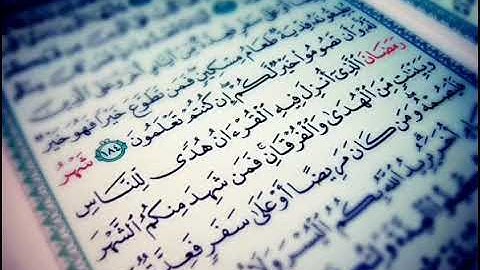 أَيَّامٍ أُخَرَ وَعَلَى ٱلَّذِينَ
فِدْيَةٌ طَعَامُ مِسْكِينٍ فَمَن تَطَوَّعَ خَيْرًا فَهُوَ خَيْرٌ
وَأَن تَصُومُوا۟ خَيْرٌ لَّكُمْ إِن كُنتُمْ تَعْلَمُونَ ١٨٤ شَهْرُ
رَمَضَانَ ٱلَّذِىٓ أُنزِلَ فِيهِ ٱلْقُرْءَانُ هُدًى لِّلنَّاسِ
وَبَيِّنَٰتٍ مِّنَ ٱلْهُدَىٰ وَٱلْفُرْقَانِ فَمَن شَهِدَ مِنكُمُ ٱلشَّهْرَ
فَلْيَصُمْهُ وَمَن كَانَ مَرِيضًا أَوْ عَلَىٰ سَفَرٍ فَعِدَّةٌ
أُخَرَ يُرِيدُ ٱللَّهُ بِكُمُ ٱلْيُسْرَ وَلَا